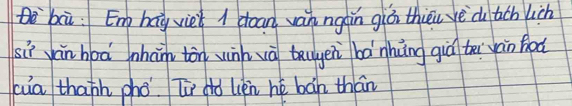 Đề bài: Em hãy viết 1 đoạn văn ngắn giới thiệu về di tích lịch
sử văn hoá nhằm tôn vinh và truyền bá những giá trị văn hoá
của thành phố. Từ đó liên hệ bản thân